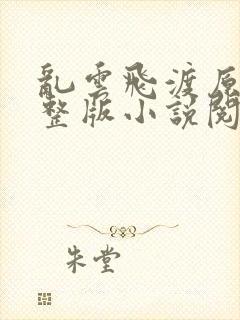 亂雲飛渡原
整版小說閱
朱堂